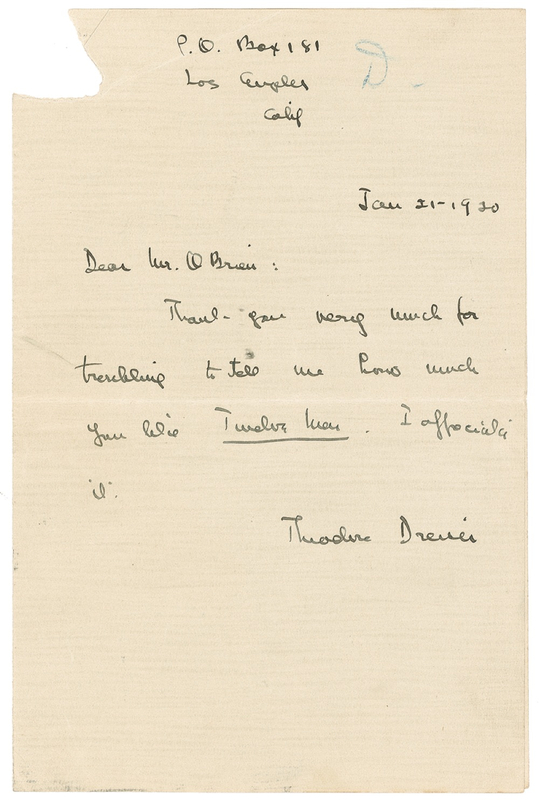 P.O. Box 181
D.
Los Angeles
Calif
Jan 21-1920
Dear Mr. O Brien:
Thank you very much for
troubling to tell me how much
you like Twelve Men. I appreciate
it.
Theodore Dreiser